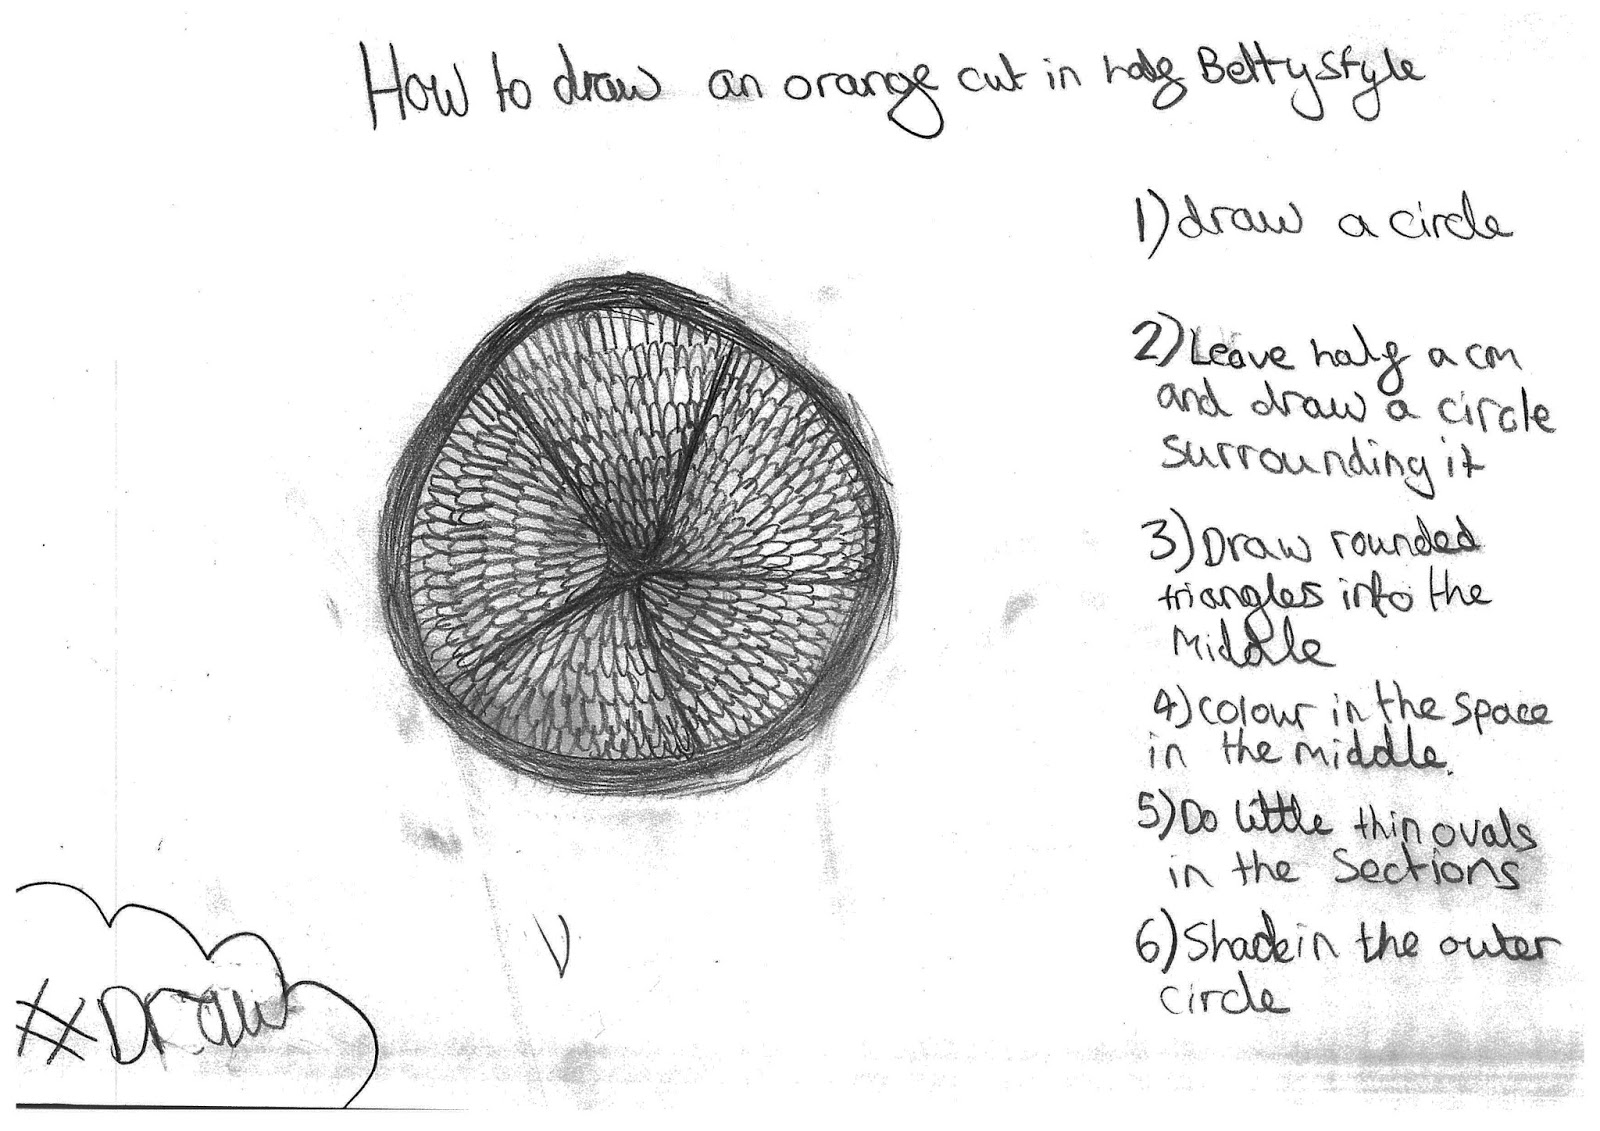 How to draw an orange cut in half Betty Style
1) draw a circle
2) Leave half a cm
and draw a circle
surrounding it
3) Draw rounded
triangles into the
Middle
4) colour in the space
in the middle.
5) Do little thin ovals
in the Sections
6) Shade in the outer
circle
#Draw